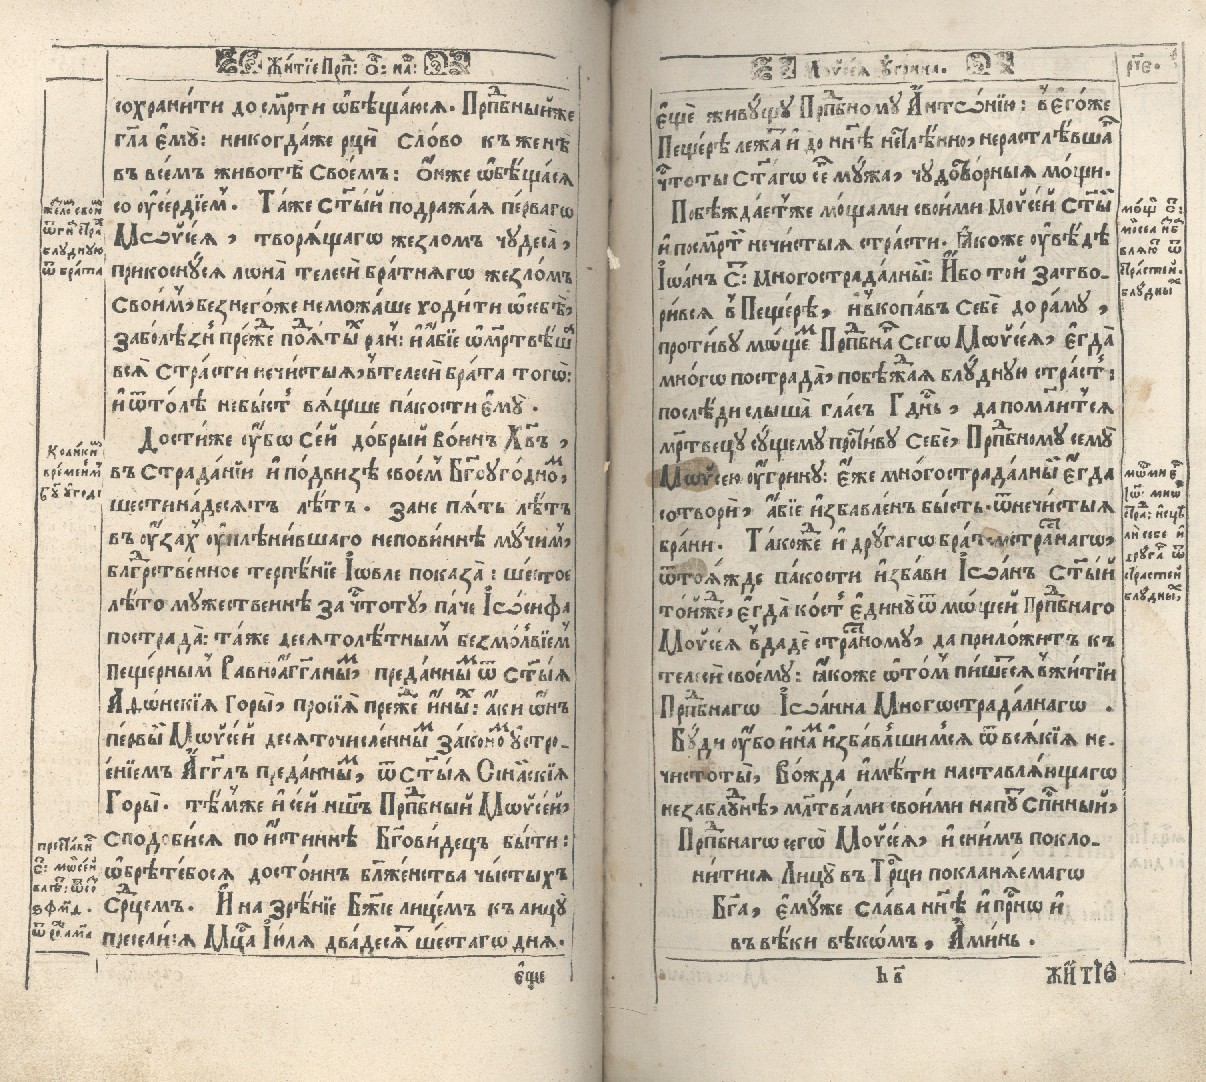 Житїе Прпⷣ: Ѻ҆: на́ш:
сохрани́ти до сме́рти ѡ҆бѣща́юся. Прпⷣбныйже
гл҃а є҆мꙋ̀: никогда́же рцы̀ сло́во къ женѣ̀
въ всѣ́мъ животѣ̀ своє́мъ: Ѻ҆́нже ѡ҆бѣща́ся
со ѹ҆се́рдїемъ. Та́же ст҃ы́й подража́я пе́рвагѡ
Мѡѷсе́я, творя́щагѡ жезло́мъ чꙋдеса̀,
прикоснꙋ́ся ло́на телесѝ бра́тнягѡ жезло́мъ
свои́мъ, без него́же немо́жаше ходи́ти ѿ себѐ,
ра́нъ: и҆ а҆́бїе
вся̀ стра́сти нечи́стыя, в телесѝ бра́та того̀:
и҆ ѿто́лѣ не бы́сть вя́щше па́кости є҆мꙋ̀.
Дости́же ѹ҆̀бѡ се́й до́брый во́инъ Хв҃ъ,
въ страда́нїи и҆ по́двизѣ своє́мъ Бг҃оꙋго́дномъ,
шестина́десятъ лѣ́тъ. зане пя́ть лѣ́тъ
въ ѹ҆́захъ ѿ плѣни́вшаго непови́ннѣ мꙋчи́мъ,
благода́рственное терпѣ́нїе І҆ѡ́вле показа̀: шесто́е
лѣ́то мꙋ́жественнѣ за чтⷭотꙋ̀, па́че І҆ѡ́сифа
пострада̀: та́же десятолѣ́тнымъ безмо́лвїемъ
Пеще́рнымъ Равноа҆́гг҃лнымъ, пре́даннымъ ѿ ст҃ы́я
А҆дѡ́нскїя Горы̀, просїя̀ пре́жде и҆ны́хъ: а҆́ки ѻ҆́нъ
пе́рвый Мѡѷсе́й десяточи́сленнымъ зако́номъ ꙋстро-
е́нїемъ А҆́гг҃лъ пре́даннымъ, ѿ ст҃ы́я Сїна́йскїя
Горы̀. тѣ́мже и҆ се́й на́шъ Прпⷣбный Мѡѷсе́й,
сподо́бися по и҆́стиннѣ Бг҃ови́децъ бы́ти:
ѡ҆брѣ́те бо ся̀ досто́инъ бл҃же́нства чи́стыхъ
Се́рдцемъ. И҆ на зрѣ́нїе Бж҃їе лице́мъ къ лицꙋ̀
пресели́ся Мцⷭа І҆ꙋ́лїя два́десятъ шеста́гѡ дня̀.
є҆ще
Жезло́мъ свои́мъ
ѿгна̀ стра́сть
блꙋ́днꙋю
ѿ бра́та
Кели́ко
вре́менъ
Бг҃ꙋ ѹ҆годѝ
преста́вися
ст҃: Мѡѷсе́й
Мѡѷсе́я Ꙋ҆́грина.
рі҃є.
є҆щѐ живꙋ́щꙋ Прпⷣбномꙋ А҆нтѡ́нїю: в є҆го́же
Пеще́рѣ лежа́тъ и҆ до нн҃ѣ нетлѣ́нно, нерастлѣ́вша
чтⷭоты̀ ст҃а́гѡ сегѡ̀ мꙋ́жа, чꙋдотво́рныя мо́щи.
Побѣжда́етъ же моща́ми свои́ми Моѷсе́й ст҃ы́й
и҆ по сме́рти нечи́стыя стра́сти. Ꙗ҆́коже ѹ҆вѣ́дѣ
І҆ѡа́нъ ст҃: многострада́лный: И҆́бо то́й затво-
ри́вся в Пеще́рѣ, и҆ вкопа́въ себѐ до ра́мꙋ,
проти́вꙋ мо́щемъ Прпⷣбнаго сегѡ̀ Мѡѷсе́я, є҆гда̀
мно́гѡ пострада̀, побѣжда́я блꙋ́днꙋю стра́сть:
послѣди́ слы́ша гла́съ Гдⷭень, да помо́лится
мертвецꙋ̀ сꙋ́щемꙋ проти́вꙋ себѐ, Прпⷣбномꙋ семꙋ̀
Мѡѷсе́ю ѹ҆́гринꙋ: є҆́же многострада́лный є҆гда̀
сотворѝ, а҆́бїе и҆зба́вленъ бы́сть ѿ нечи́стыя
бра́ни. Та́коже и҆ дрꙋга́го бра́та стра́стнагѡ,
ѿ тоя́жде па́кости и҆зба́ви І҆ѡа́нъ ст҃ы́й
то́йже, є҆гда̀ ко́сть є҆ди́нꙋ ѿ мо́щей Прпⷣбнаго
Моѷсе́я вдадѐ стра́стномꙋ, да приложи́тъ къ
телесѝ своємꙋ̀: ꙗ҆́коже ѡ҆ то́мъ пи́шется в житїѝ
Прпⷣбнагѡ І҆ѡа́нна Многѡстрада́лнагѡ.
Бꙋ́ди ѹ҆́бо и҆ на́мъ и҆зба́вльшимся ѿ вся́кїя не-
чистоты̀, Вожда̀ и҆мѣ́ти наставля́ющагѡ
незаблꙋ́днѣ, мл҃твами свои́ми на пꙋ́ть Спасе́нный,
Прпⷣбнагѡ сегѡ̀ Моѷсе́я, и҆ с ни́мъ покло-
ни́тися Лицꙋ̀ въ Трⷪ҇ци покланя́емагѡ
Бг҃а, є҆мꙋ́же сла́ва нн҃ѣ и҆ при́снѡ и҆
въ вѣ́ки вѣкѡ́мъ, А҆ми́нь.
житїе